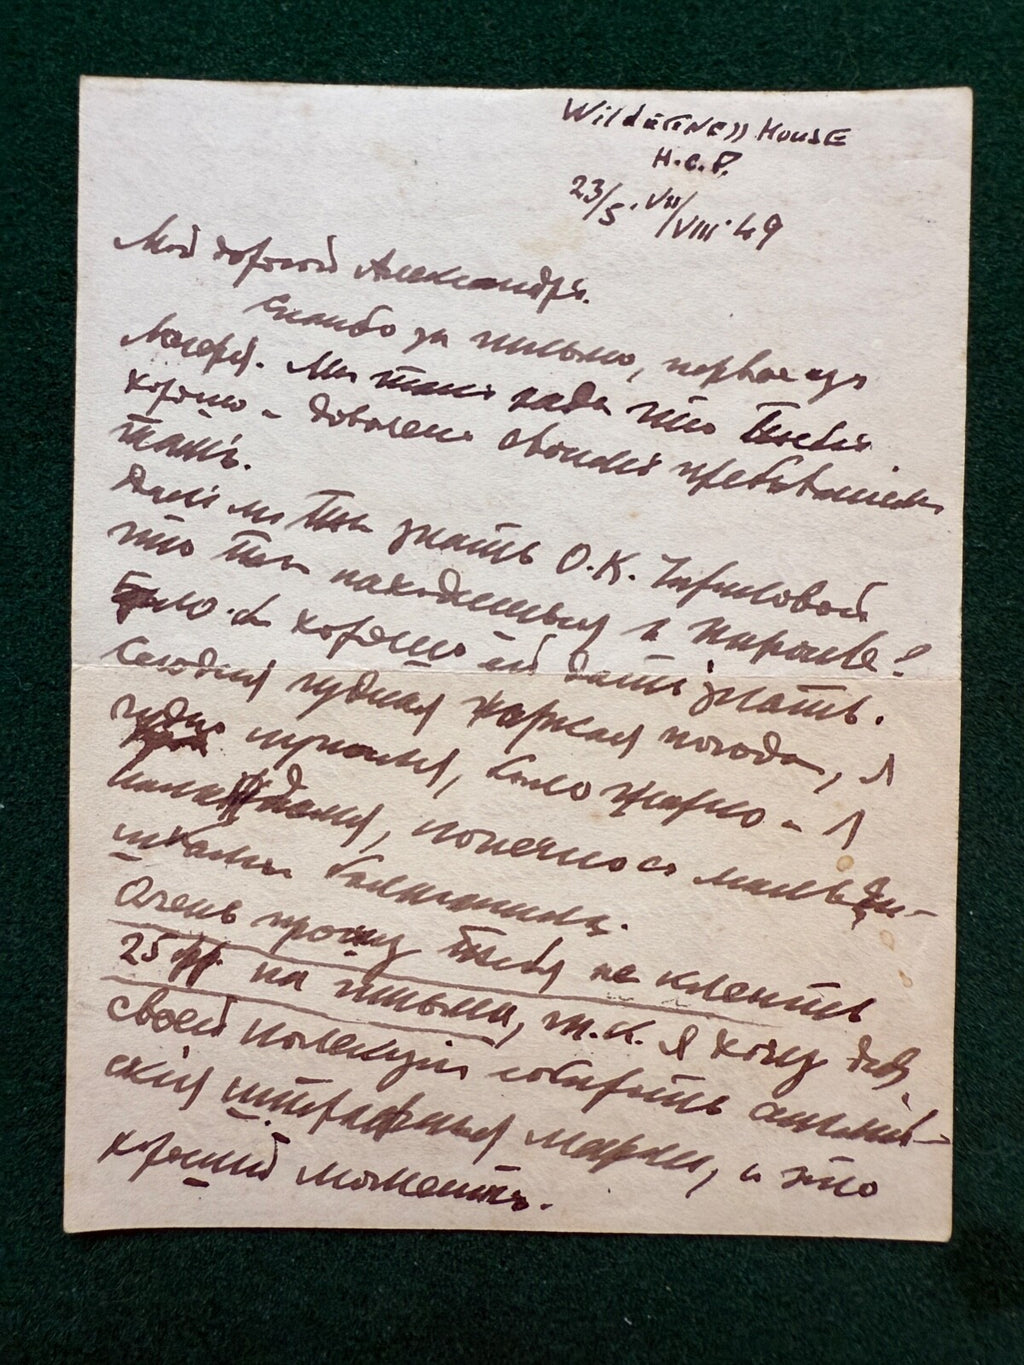 Wilderness House
H.C.P.
23/5. VII/VIII. 49
Мой дорогой Александръ.
Спасибо за письмо, первое изъ
Лагеря. Мы такъ рады что Тебѣ
хорошо - доволенъ своимъ пребываніемъ
тамъ.
Далъ ли Ты знать О.К.
что Ты находишься в Париже?
Было-бы хорошо ей дать знать.
Сегодня чудная жаркая погода, я
чудно, было жарко - я
, конечно съ
штанами.
Очень прошу Тебя не клеить
25 фр. на письма, т.к. я хочу для
своей коллекціи собирать англій-
скія штрафныя марки, и это
хорошій моментъ.